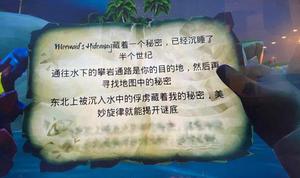 Mermaid's Hideaway藏着一个秘密，已经沉睡了
半个世纪
通往水下的攀岩通路是你的目的地，然后再
寻找地图中的秘密
东北上被沉入水中的俘虏藏着我的秘密，美
妙旋律就能揭开谜底